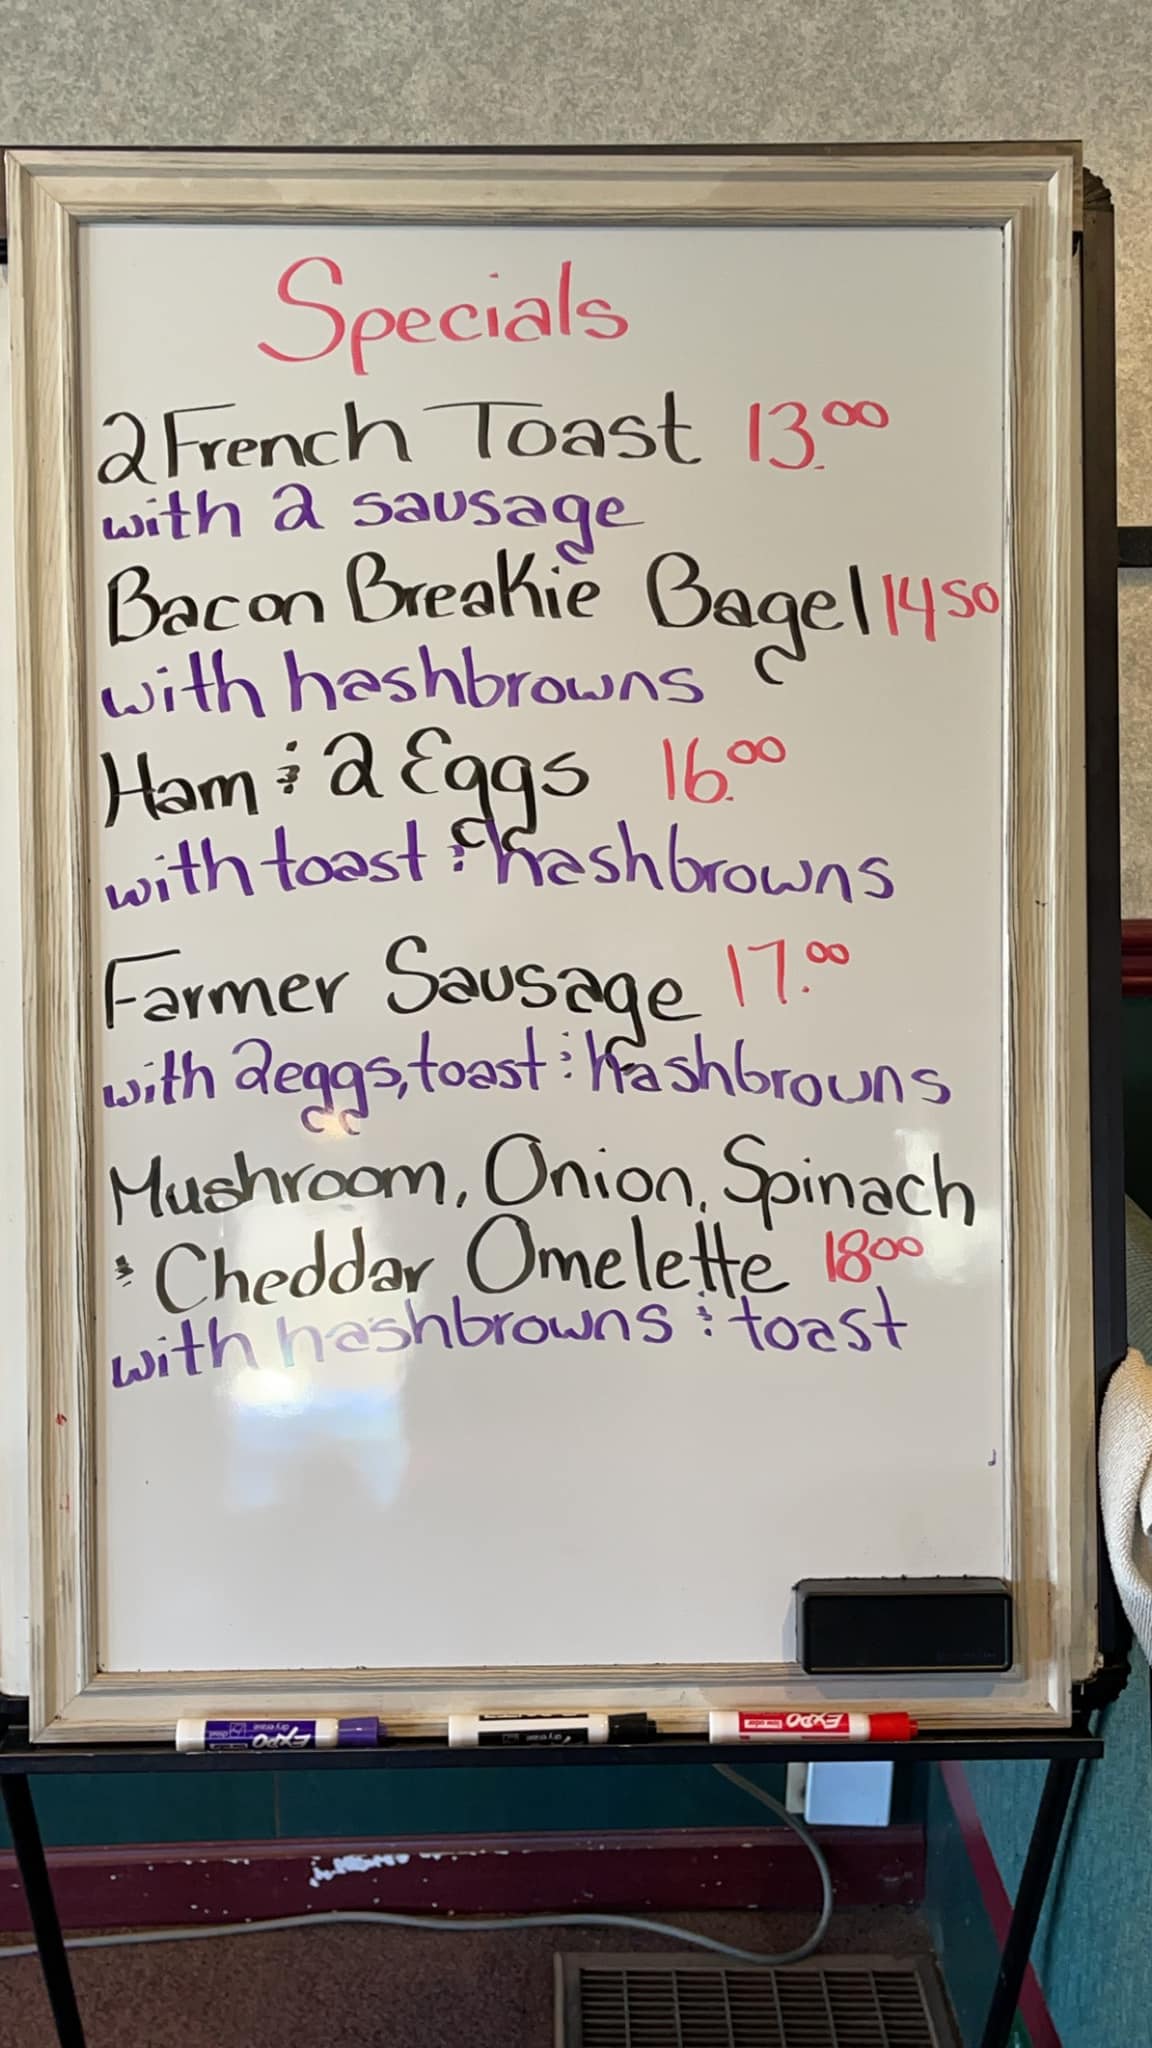 Specials
2 French Toast 13.00
with 2 sausage
Bacon Breakie Bagel 14 50
with hashbrowns
Ham & 2 Eggs 16.00
with toast & hashbrowns
Farmer Sausage 17.00
with 2 eggs, toast & hashbrowns
Mushroom, Onion, Spinach
& Cheddar Omelette 18 00
with hashbrowns & toast
EXPO
dry erase
EXPO